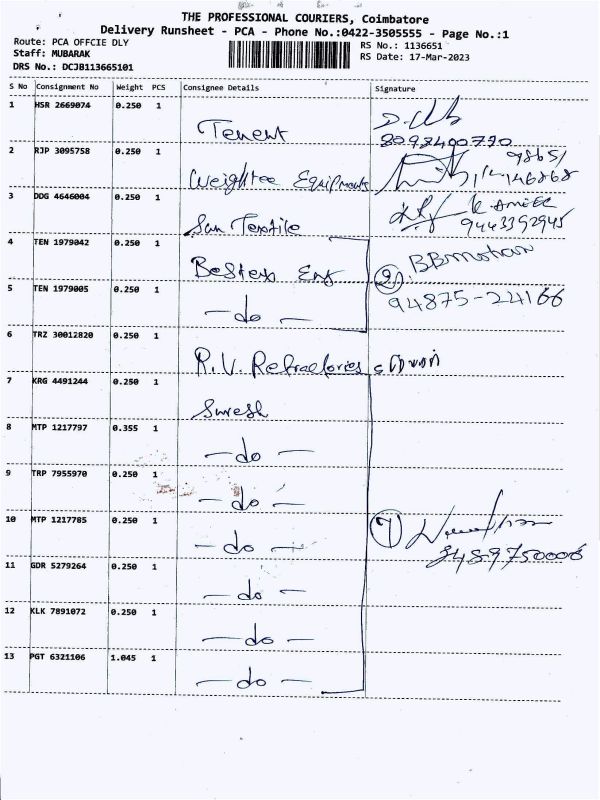 THE PROFESSIONAL COURIERS, Coimbatore
Delivery Runsheet - PCA - Phone No.:0422-3505555 - Page No.:1
Route: PCA OFFCIE DLY
RS No.: 1136651
Staff: MUBARAK
RS Date: 17-Mar-2023
DRS No.: DCJB113665101
S No Consignment No Weight PCS Consignee Details Signature
1 HSR 2669074 0.250 1
Tenent
8092400790
2 RJP 3095758 0.250 1
Weightec Equipments
98651
146868
3 DDG 4646004 0.250 1
San Textile
9443392945
4 TEN 1979042 0.250 1
(2) BBmohan
5 TEN 1979005 0.250 1
- do -
94875-24166
6 TRZ 30012820 0.250 1
R.V. Refractories
7 KRG 4491244 0.250 1
Suresh
8 MTP 1217797 0.355 1
- do -
9 TRP 7955970 0.250 1
- do -
10 MTP 1217785 0.250 1
- do -
(7)
11 GDR 5279264 0.250 1
- do -
12 KLK 7891072 0.250 1
- do -
13 PGT 6321106 1.045 1
- do -